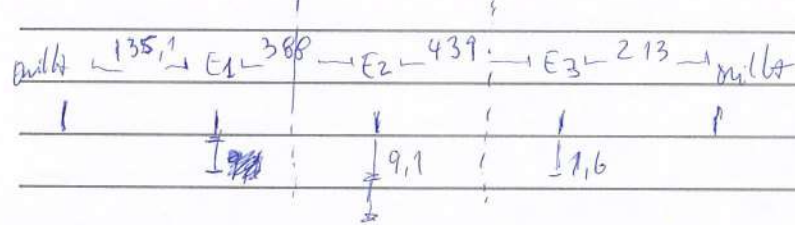 orilla 135,1 E1 388 E2 439 E3 213 orilla
9,1 1,6